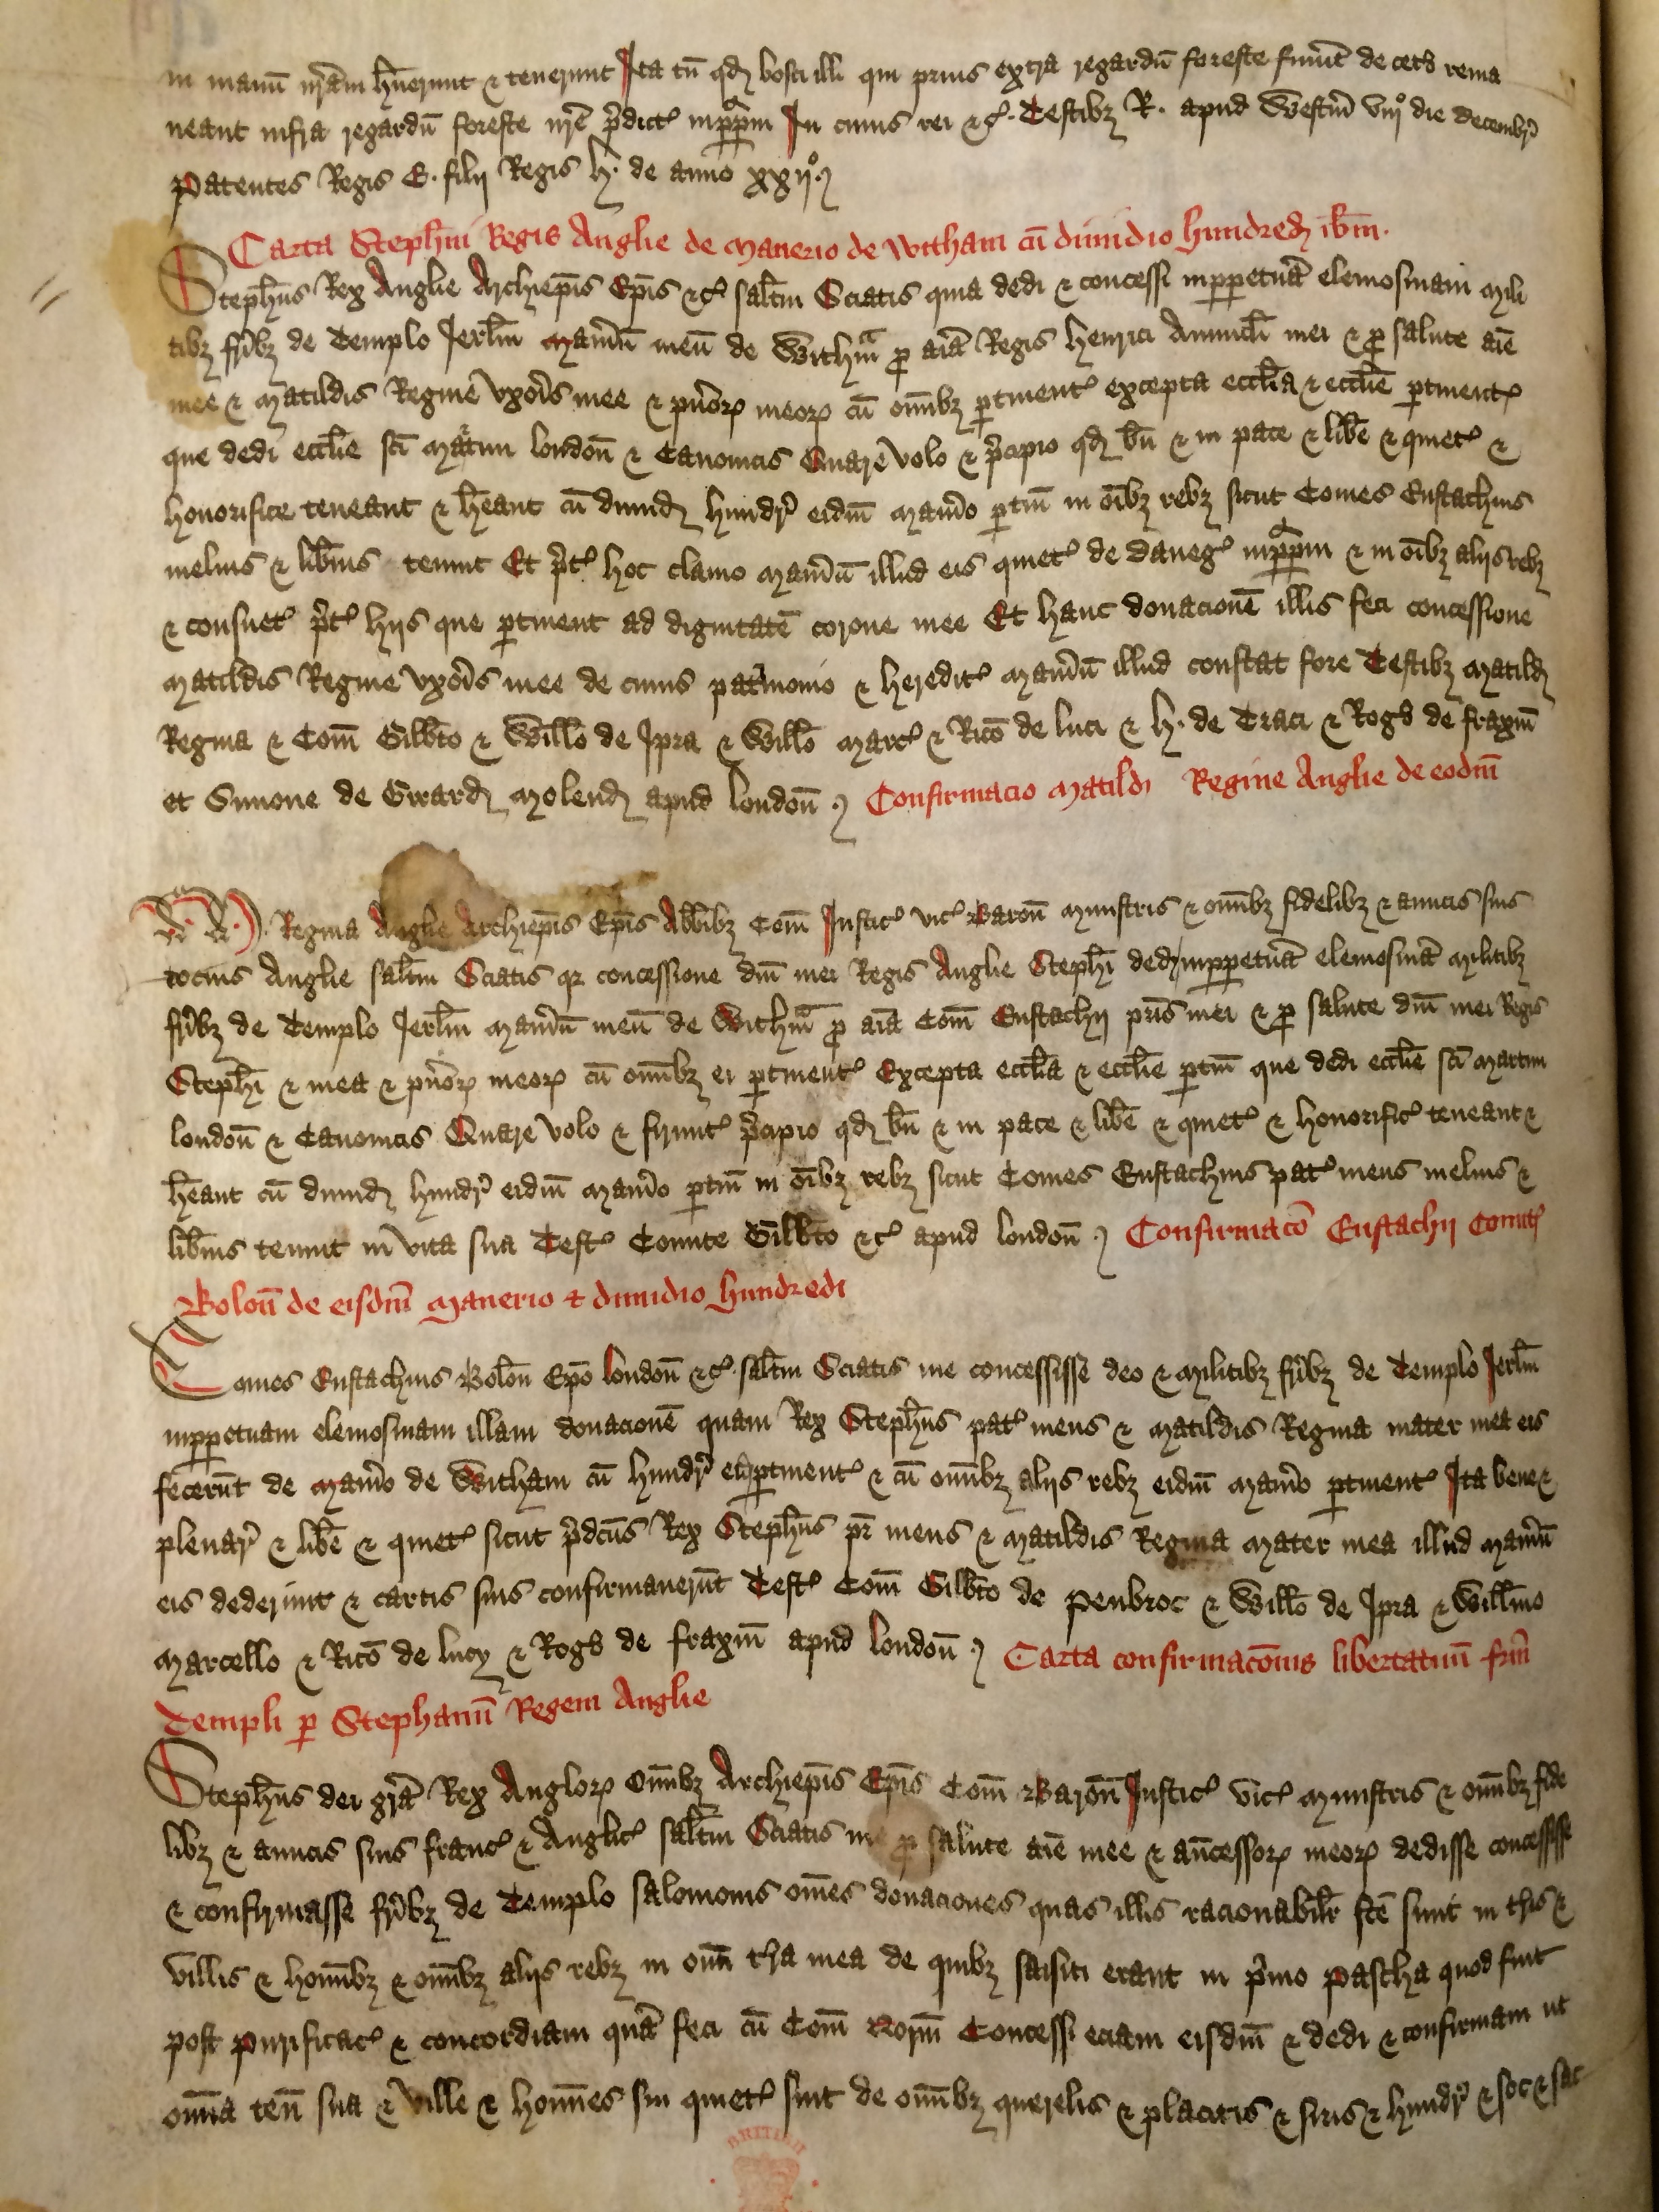 in manū nr̄am hūerunt ⁊ tenerunt Ita tn̄ qd̛ bosci illi qui prius extra regardū foreste fuūt de cet̛o rema
neant infra regardū foreste nr̄e p̄dict̛ inp̱pm̄ In cuius rei ⁊c̛. Testibȝ R. apud Westm̄ viijº die decembr̛
Patentes Regis E. filij Regis h̛. de anno xxijº.
Carta Steph̄ni Regis Anglie de Manerio de Witham cū dimidio hundred̛ ib̄m.
Steph̄us Rex Anglie Archiep̄is Ep̄is ⁊c̛ salt̄m Sciatis quia dedi ⁊ concessi inp̱petuā elemosinam Mili
tibȝ fr̄ibȝ de Templo Jerl̄m Man̄iū meū de Withm̄ p̱ aīa Regis henrici Auunculi mei ⁊ p̱ salute aīe
mee ⁊ Matildis Regine vxor̄is mee ⁊ pūorꝝ meorꝝ cū om̄ibȝ p̱tinent̛ excepta eccl̄ia ⁊ eccl̄ie p̱tinent̛
que dedi eccl̄ie sc̄i Martini london̄ ⁊ Canonicis Quare volo ⁊ p̄cipio qd̛ bn̄ ⁊ in pace ⁊ lib̄e ⁊ quiet̛ ⁊
honorifice teneant ⁊ h̄eant cū dimid̛ hundr̛ eidm̄ Man̄io p̱tin̄ in oībȝ rebȝ sicut Comes Eustachius
melius ⁊ lib̄ius tenuit Et p̄t̛ hoc clamo Man̄iū illud eis quiet̛ de daneg̛ inp̱pm̄ ⁊ in oībȝ alijs rebȝ
⁊ consuet̛ p̄t̛ hijs que p̱tinent ad dignitatē corone mee Et hanc donacionē illis feci concessione
Matildis Regine vxor̄is mee de cuius pat̛monio ⁊ heredit̛ Man̄iū illud constat fore Testibȝ Matild̛
Regina ⁊ Com̄ Gilb̄to ⁊ Will̄o de Ipra ⁊ Will̄o Marc̛ ⁊ Ric̄o de luci ⁊ h̛. de Traci ⁊ Rog̛o de fraxin̄
et Simone de Girard̛ Molend̛ apud london̄ Confirmacio Matild̛ Regine Anglie de eodm̄
Regina Anglie Archiep̄is Ep̄is Abb̄ibȝ Com̄ Justic̛ vic̛ Baron̄ Ministris ⁊ om̄ibȝ fidelibȝ ⁊ amicis suis
tocius Anglie salt̄m Sciatis qꝛ concessione dn̄i mei Regis Anglie Steph̄i dedi inp̱petuā elemosinā Militibȝ
fr̄ibȝ de Templo Jerl̄m Man̄iū meū de Withm̄ p̱ aīa Com̄ Eustachij pr̄is mei ⁊ p̱ salute dn̄i mei Regis
Steph̄i ⁊ mea ⁊ pūorꝝ meorꝝ cū om̄ibȝ ei p̱tinent̛ Excepta eccl̄ia ⁊ eccl̄ie p̱tin̄ que dedi eccl̄ie sc̄i Martini
london̄ ⁊ Canonicis Quare volo ⁊ firmit̛ p̄cipio qd̛ bn̄ ⁊ in pace ⁊ lib̄e ⁊ quiet̛ ⁊ honorific̛ teneant ⁊
h̄eant cū dimid̛ hundr̛ eidm̄ Man̄io p̱tin̄ in oībȝ rebȝ sicut Comes Eustachius pat̛ meus melius ⁊
lib̄ius tenuit in vita sua Test̛ Comite Gilb̄to ⁊c̛ apud london̄ Confirmac̄o Eustachij Comit̛
Bolon̄ de eisdm̄ Manerio ⁊ dimidio hundredi
Comes Eustachius Bolon̄ Ep̄o london̄ ⁊c̛. salt̄m Sciatis me concessisse deo ⁊ Militibȝ fr̄ibȝ de Templo Jerl̄m
inp̱petuam elemosinam illam donacionē quam Rex Steph̄us pat̛ meus ⁊ Matildis Regina mater mea eis
fecerūt de Man̄io de Witham cū hundr̛ ei p̱tinent̛ ⁊ cū om̄ibȝ alijs rebȝ eidm̄ Man̄io p̱tinent̛ Ita bene ⁊
plenar̛ ⁊ lib̄e ⁊ quiet̛ sicut p̄dc̄us Rex Steph̄us pr̄ meus ⁊ Matildis Regina Mater mea illud Man̄iū
eis dederunt ⁊ cartis suis confirmauerūt Test̛ Com̄ Gilb̄to de Penbroc ⁊ Will̄o de Ipra ⁊ Will̄mo
Marcello ⁊ Ric̄o de lucy ⁊ Rog̛o de fraxin̄ apud london̄ Carta confirmac̄onis libertatum fr̄m
Templi p̱ Stephanū Regem Anglie
Steph̄us dei gr̄a Rex Anglorꝝ Om̄ibȝ Archiep̄is Ep̄is Com̄ Baron̄ Justic̛ vic̛ Ministris ⁊ om̄ibȝ fide
libȝ ⁊ amicis suis franc̛ ⁊ Anglic̛ salt̄m Sciatis me p̱ salute aīe mee ⁊ an̄cessorꝝ meorꝝ dedisse concessisse
⁊ confirmasse fr̄ibȝ de Templo salomonis om̄es donaciones quas illis racionabilr̄ fc̄e sunt in t̛ris ⁊
villis ⁊ hom̄ibȝ ⁊ om̄ibȝ alijs rebȝ in om̄i t̛ra mea de quibȝ saisiti erant in p̄mo Pascha quod fuit
post Purificac̛ ⁊ concordiam quā feci cū Com̄ Norm̄ Concessi eciam eisdm̄ ⁊ dedi ⁊ confirmam ut
om̄ia ten̄ sua ⁊ ville ⁊ hom̄es sui quiet̛ sint de om̄ibȝ querelis ⁊ placitis ⁊ siris ⁊ hundr̛ ⁊ soc ⁊ sac
BRITISH